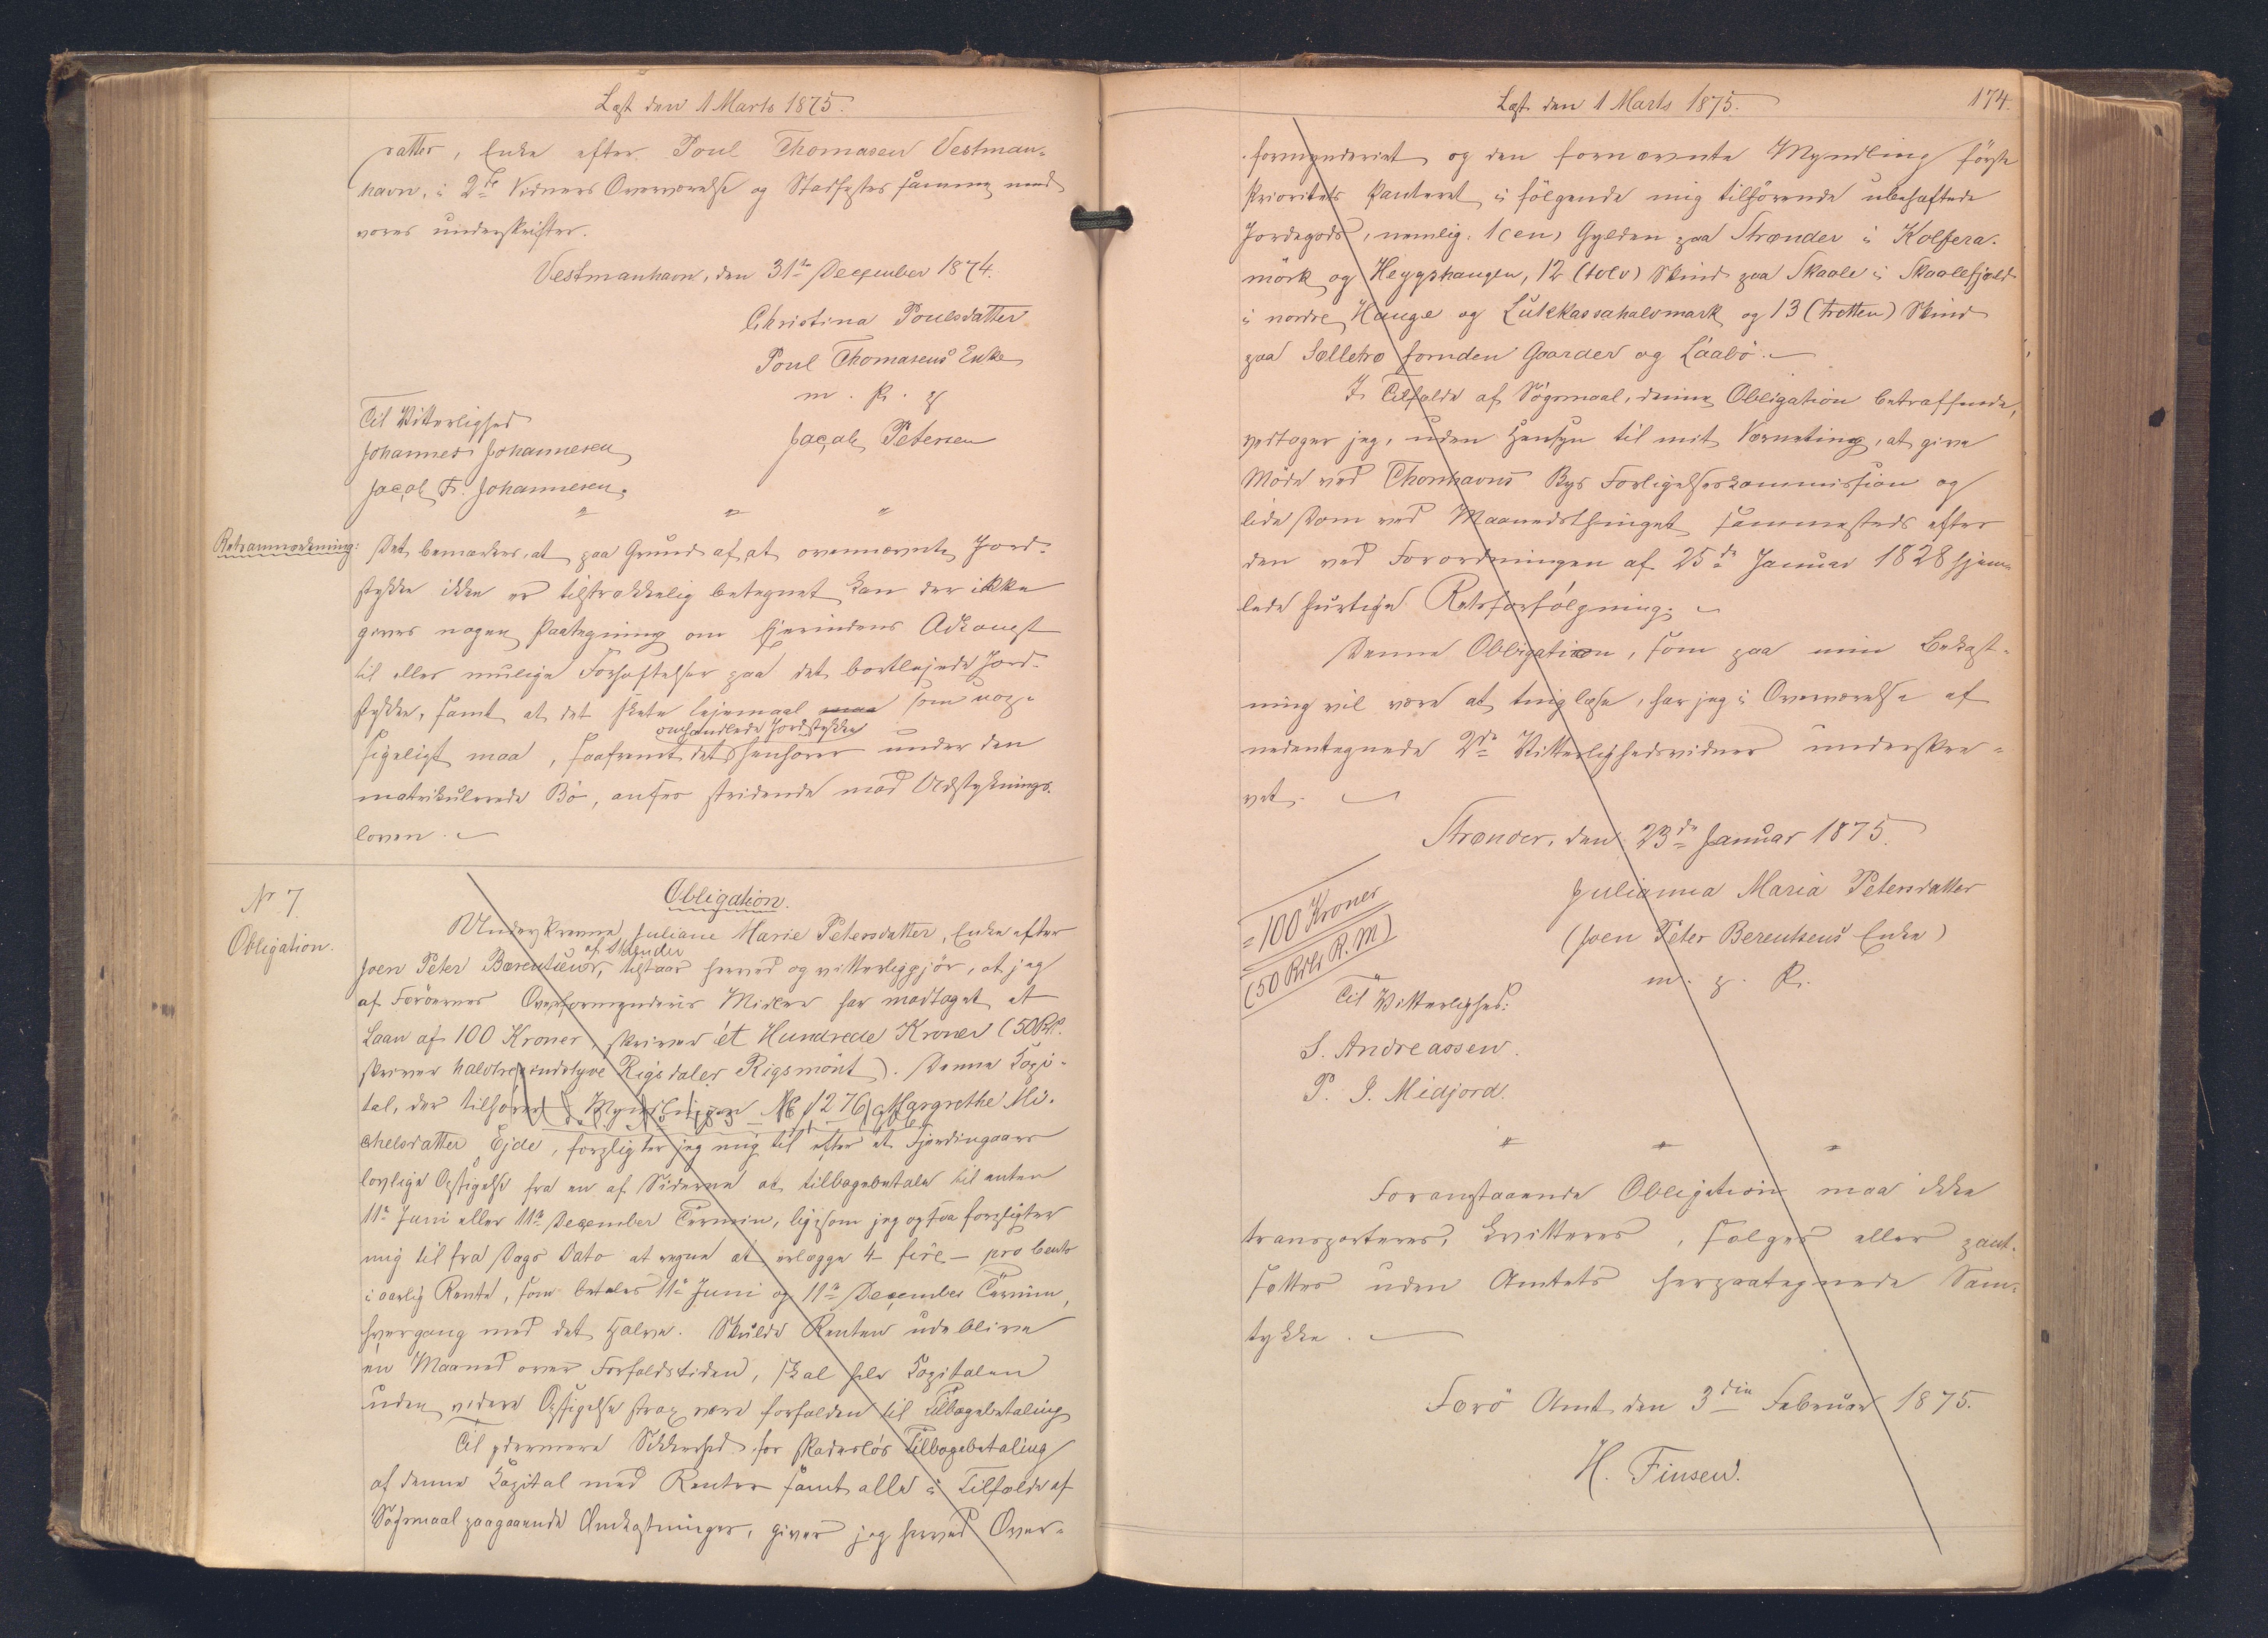 Læst den 1 Marts 1875.
datter, Enke efter Poul Thomasen Vestman-
havn, i 2de Vidners Overværelse og Stadfæstes samme med
vores underskrifter.
Vestmanhavn, den 31te December 1874.
Christina Poulsdatter
Poul Thomasens Enke
m. p.
Til Vitterlighed
Johannes Johannesen
Jacob Petersen
Jacob Fr. Johannesen.
Retsanmærkning: Det bemærkes, at paa Grund af, at ovennævnte Jord-
stykke ikke er tilstrækkelig betegnet kan der ikke
gives nogen Paategning om Ejerindens Adkomst
til eller mulige Forhæftelser paa det bortlejede Jord-
stykke, samt at det skete Lejemaal maa som
omhandlede Jordstykke
maa, saafremt det henhører under den
matrikulerede Bø, anses stridende mod Udstyknings-
loven.
No 7.
Obligation.
Obligation.
Underskrevne Juliane Marie Petersdatter, Enke efter
af Strender
Joen Peter Bærentsens, tilstaar herved og vitterliggjør, at jeg
af Færøernes Overformynderis Midler har modtaget et
Laan af 100 Kroner, skriver ét Hundrede Kroner (50 Rd.
skriver halvtredsindstyve Rigsdaler Rigsmönt). Denne Kapi-
tal, der tilhører Myndlingen No 1276 Margrethe Mi-
chelsdatter Ejde, forpligter jeg mig til efter et Fjerdingaars
lovlige Opsigelse fra en af Siderne at tilbagebetale til enten
11te Juni eller 11te December Termin, ligesom jeg ogsaa forpligter
mig til fra Dags Dato at regne at erlægge 4 - fire - pro Cento
i aarlig Rente, som betales 11te Juni og 11te December Termin,
hvergang med det Halve. Skulde Renten udeblive
en Maaned over Forfaldstiden, skal hele Kapitalen
uden videre Opsigelse strax være forfalden til Tilbagebetaling
Til ydermere Sikkerhed for skadeslös Tilbagebetaling
af denne Kapital med Renter samt alle i Tilfælde af
Søgsmaal paagaaende Omkostninger, giver jeg herved Over-
Læst den 1 Marts 1875.
174.
formynderiet og den fornævnte Myndling første
Prioritets Panteret i følgende mig tilhørende ubehæftede
Jordegods, nemlig: 1 (en) Gylden paa Strænder i Kolfera-
mörk og Heygshaugen, 12 (tolv) Skind paa Skaale i Skaallefjeld
i nordre Hauge og Lukkassahalvmark og 13 (tretten) Skind
paa Selletræ fornden Gaarder og Láabö.
I Tilfælde af Søgsmaal, denne Obligation betræffende,
vedtager jeg, uden Hensyn til mit Værneting, at give
Møde ved Thorshavns Bys Forligelseskommission og
lide Dom ved Maanedsthinget sammesteds efter
den ved Forordningen af 25de Januar 1828 hjem-
lede hurtige Retsforfølgning.
Denne Obligation, som paa min Bekost-
ning vil være at tinglæse, har jeg i Overværelse af
nedentegnede 2de Vitterlighedsvidner underskre-
vet.
Strænder, den 23de Januar 1875.
= 100 Kroner
(50 Rdlr R.M)
Julianna Maria Petersdatter
(Joen Peter Berentsens Enke)
m. p.
Til Vitterlighed:
S. Andreassen.
P. J. Midjord.
Foranstaaende Obligation maa ikke
transporteres, kvitteres, sælges eller pant-
sættes uden Amtets herpaategnede Sam-
tykke.
Færö Amt den 3die Februar 1875.
H. Finsen.